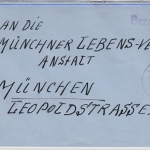 AN DIE
MÜNCHNER LEBENS-VE
ANSTALT
MÜNCHEN
LEOPOLDSTRASSE